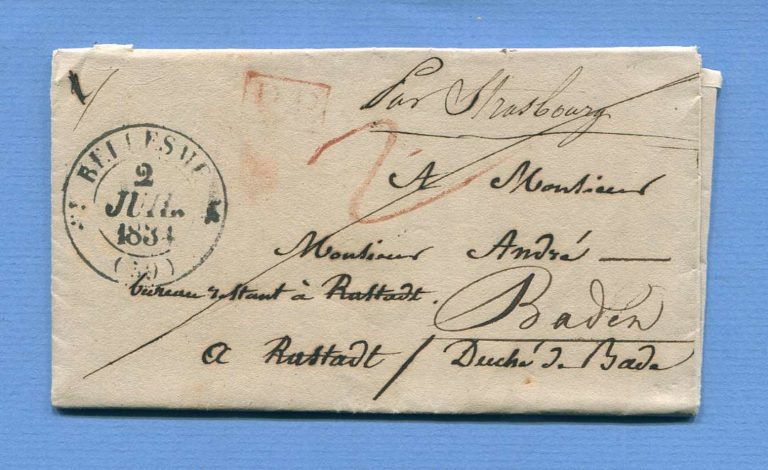 Par Strasbourg
P.P.
2
BELLESME
2
JUIL.
1834
A Monsieur
Monsieur André
bureau restant à Rastadt.
Baden
a Rastadt / Duché de Bade